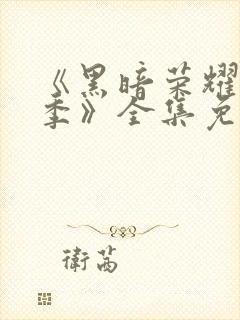 《黑暗荣耀
季》全集免
衛茜